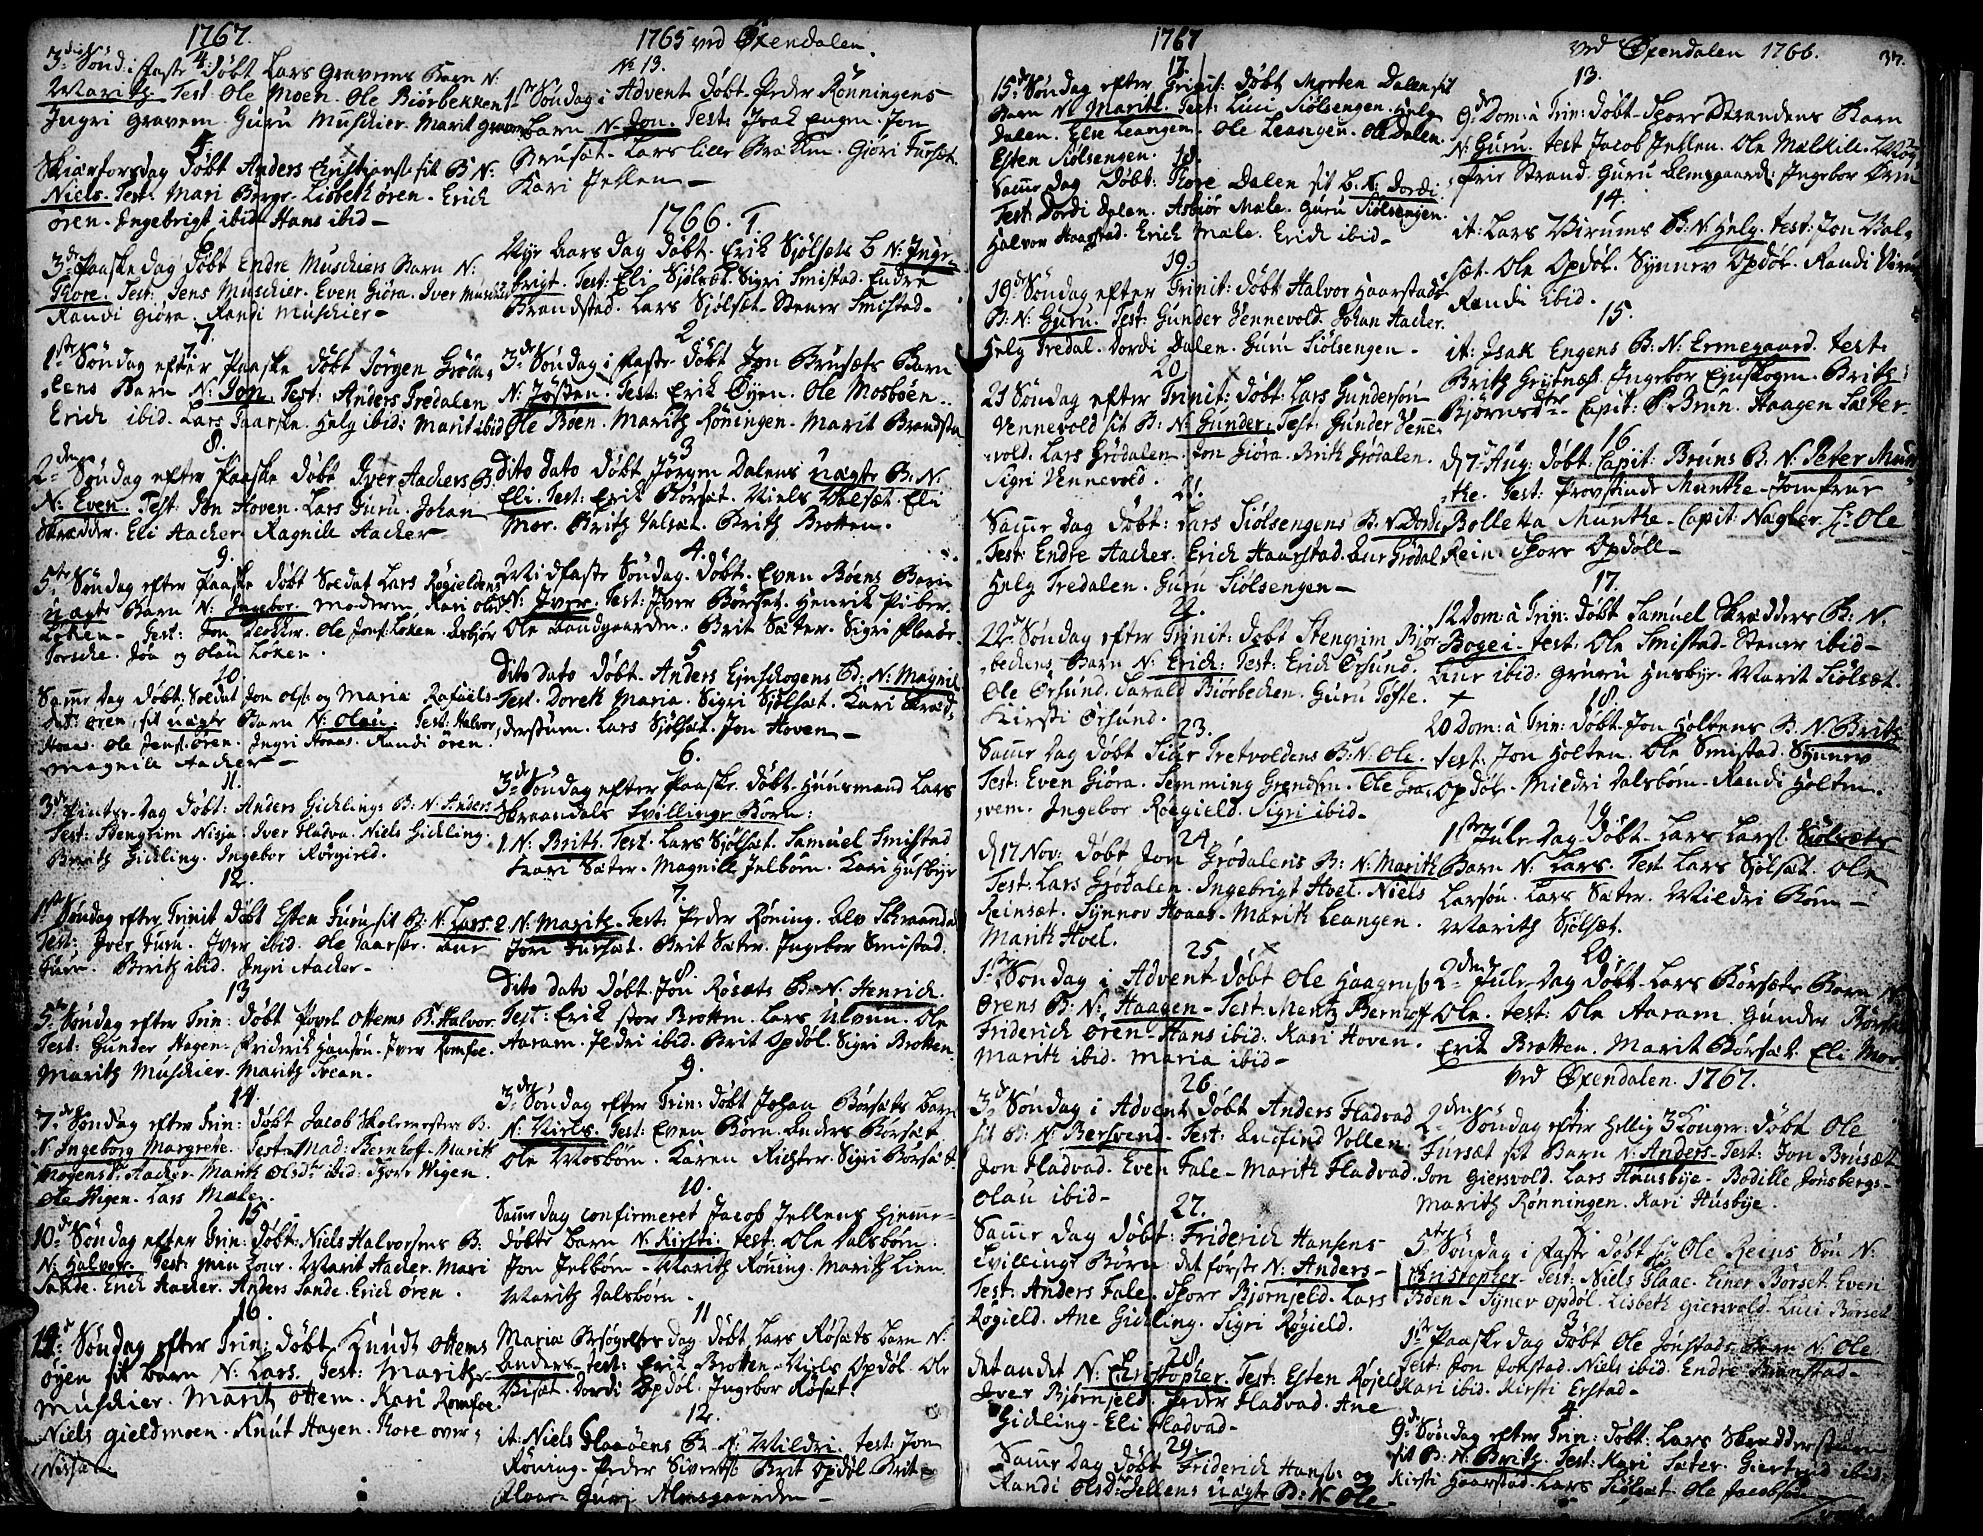 1767.
3die Sønd: i Faste Døbt Lars Gravems Barn N:
4.
Marith. Test: Ole Moen. Ole Biørbekken
Ingri Gravem. Guru Muschier. Marit Gravem
5.
Skiærtorsdag Døbt Anders Christians: sit B: N:
Niels. Test: Mari Berge. Lisbeth Øren. Erich
Øren. Ingebrigt ibid. Hans ibid—
3die Paaske dag Døbt Endre Muschiers Barn N:
Thore. Test: Jens Muschier. Even Giøra. Iver Muschier
Randi Giøra. Randi Muschier—
7.
1ste Søndag efter Paaske Døbt Jørgen Grøda-
lens Barn N: Jon. Test: Anders Tredalen
Erich ibid. Lars Taarske. Helg ibid: Marit ibid
8.
2den Søndag efter Paaske Døbt Iver Aachers B:
N: Even. Test: Jon Hoven. Lars Furu. Johan
Skrædder. Eli Aacher. Ragnile Aacher—
9.
5te Søndag efter Paaske Døbt Soldat Lars Røgieldens
uægte Barn N: Ingebor. Moderen Kari Olsdr
Løken— Test: Jon Løken. Ole Jons: Løken.
Torske. Jøn og Olau Løken.
10
Samme dag Døbt Soldat Jon Ols: og Maria Rafaels-
datr Øren, sit uægte Barn N: Olau. Test: Halvor
Hoaas. Ole Jens: Øren. Ingri Hoaas. Randi Øren.
Magnille Aacher—
11.
3die Pintse-Dag Døbt: Anders Gicklings B: N: Anders.
Test: Stengrim Nisja: Iver Fladva. Niels Gickling.
Brith Gickling. Ingebor Røgield.
12.
1ste Søndag efter Trinit Døbt Esten Furu sit B: N: Lars.
Test: Iver Furu. Iver ibid. Ole Taarske.
Furu. Brith ibid. Ingri Aacher—
13
5te Søndag efter Trin: Døbt Povel Ottems B: N: Halvor.
Test: Gunder Hagen. Friderich Hansøn. Iver Romfoe.
Marith Muschier. Marith Svean.
14.
7de Søndag efter Trin: Døbt Jacob Skolemesters B:
N: Ingeborg Margrete. Test: Mad: Bernhof. Marith
Mogensdr Aacher. Marith Olsdr ibid: Thore Wigen.
Ole Wigen. Lars Mæle.
15.
10de Søndag efter Trin: Døbt: Niels Halvorsens B:
N: Halvor. Test: Marit Aacher. Mari
Sande. Erich Aacher. Anders Sande. Erich Øren.
16.
14de Søndag efter Trin: Døbt Knudt Ottems
øyen sit barn N: Lars. Test: Marith
Muschier. Marith Ottem. Kari Romfoe
Niels Gieldmoen. Knut Hagen. Thore over-

1765 ved Øxendalen.
No 13.
1ste Søndag i Advent Døbt Peder Rønningens
barn N: Jon. Test: Isak Engen. Jon
Brusæt. Lars Lille Bratten. Giøri Fursæt.
Kari Jellen—
1766. 1.
Nyt Aars Dag Døbt. Erik Sjølsets B N: Inge-
brigt. Test: Eli Sjølset. Sigri Smistad. Endre
Brandstad. Lars Sjølset. Stener Smistad—
2.
3die Søndag i Faste. Døbt. Jon Brusæts Barn
N: Jøsten. Test: Erik Øyen. Ole Mosbøen.
Ole Bøen. Marith Røningen. Marit Brandsta
3
Dito dato Døbt Jørgen Dalens uægte B: N:
Eli. Test: Erik Børsæt. Niels Valsæt. Eli
Mor. Brith Valsæt. Brith Brotten.
4.
Midfaste Søndag. Døbt. Even Bøens Barn
N: Iver. Test: Iver Børset. Henrik Piber.
Ole Sandgaarden. Brit Sæter. Sigri Floaør
5
Dito dato Døbt. Anders Ejnskogens B: N: Magnil
Test. Dorete Maria. Sigri Sjølsæt. Kari Skræd-
derstuen. Lars Sjølsæt. Jon Hoven—
6.
3die Søndag efter Paaske. Døbt. Huusmand Lars
Skraandals Tvillinge Børn:
1. N: Brith. Test. Lars Sjølsæt. Samuel Smistad
Kari Sæter. Magnille Jelbøen. Kari Husbye
7.
2. N: Marith. Test: Peder Røning. Ole Skraanda
Jori Fursæt. Brit Sæter. Ingebor Smistad.
8
Dito dato Døbt. Jon Røsæts B: N: Henrich.
Test: Erik stor Brotten. Lars Ulvun. Ole
Aaram. Jedri ibid. Brit Opdøl. Sigri Brotten.
9.
3die Søndag efter Trin: Døbt Johan Børsæts barn
N: Niels. Test: Even Bøen. Anders Børsæt
Ole Mosbøen. Karen Richter. Sigri Børsæt
10.
Samme dag confirmeret Jacob Jellens hiemme-
døbte barn N: Kirsti. test: Ole Valsbøen.
Jon Jelbøen. Marith Røning. Marith Lien.
Marith Valsbøen.
11
Mariæ Besøgelses dag døbt Lars Røsæts barn N:
Anders. test: Erik Brotten. Niels Opdøl. Ole
Visæt. Dordi Opdøl. Ingebor Røsæt
12.
it: Niels Floaøens B: N: Mildri. test: Jon
Røning. Peder Siverts: Brit Opdøl. Brit
Floaør Gurj Almsgaarden—

1767
17.
15de Søndag efter Trinit: Døbt Morten Dalen sit
Barn N: Marith. Test: Luci Siølsengen. Helg
Dalen. Else Leangen. Ole Leangen. Ole Dalen.
Esten Siølsengen.
18.
Samme dag Døbt: Thore Dalen sit B: N: Dordi
Test: Dordi Dalen. Asbiør Mæle. Guru Siølsengen.
Halvor Haarstad. Erich Mæle. Erich ibid—
19.
19de Søndag efter Trinit: Døbt Halvor Haarstads
B: N: Guru. Test: Gunder Vennevold. Johan Aacher.
Helg Tredal. Dordi Dalen. Guru Siølsengen—
20
21 Søndag efter Trinit: Døbt: Lars Gundersøn
Vennevold sit B: N: Gunder: Test: Gunder Vene-
vold. Lars Grødalen. Jon Giøra. Brith Grødalen.
Sigri Vennevold.
21.
Samme dag Døbt: Lars Siølsengens B: N: Dordi
Test: Endre Aacher. Erich Haarstad. Grødal
Helg Tredalen. Guru Siølsengen—
22.
22de Søndag efter Trinit: Døbt Stengrim Biør-
beckens Barn N: Erich: Test: Erich Ørsund.
Ole Ørsund. Harald Biørbecken. Guru Tofte.
Kirsti Ørsund.
23.
Samme dag Døbt Siur Tretvoldens B: N: Ole.
Test: Even Giøra. Semming Grendsen. Ole Gra-
vem. Ingebor Røegield. Sigri ibid—
24.
d 17 Nov: Døbt Jon Grødalens B: N: Marith
Test: Lars Grødalen. Ingebrigt Hoel. Niels
Reinsæt. Synnov Hoaas. Marith Leangen.
Marith Hoel.
25.
1ste Søndag i Advent Døbt Ole Haagens:
Ørens B: N: Haagen. Test: Mentz Bernhof
Friderich Øren. Hans ibid. Kari Hoven.
Marith ibid. Maria ibid—
26.
3die Søndag i Advent Døbt Anders Fladvad
sit B: N: Bersvend. Test: Vollen.
Jon Fladvad. Even Fale. Marith Fladvad.
Olau ibid—
27.
Samme dag Døbt: Friderich Hansens
tvillinge Børn: det første N: Anders—
Test: Anders Fale. Thore Bjørnjeld. Lars
Røgield. Ane Gickling. Sigri Røgield.
28
det andet N: Christopher. Test: Esten Røjeld
Iver Bjørnjeld. Peder Fladvad. Ane
Gickling. Eli Fladvad—
29.
Samme dag Døbt Friderich Hans: og
Randi Olsdr Jellens uægte B: N: Ole—

ved Øxendalen 1766. 37.
13.
9de Dom: à Trin: Døbt. Thore Strandens Barn
N: Guru. test Jacob Jellen. Ole Mælkild.
Strand. Guru Almsgaard: Ingebor
14.
it: Lars Virums B: N: Helg. test: Jon Val-
sæt. Ole Opdøl. Synnev Opdøl. Randi Virum
Randi ibid.
15.
it: Isak Engens B: N: Ermegaard. test:
Brith Grytnæs. Ingebor Ejnskogen. Brith
Bjørnsdtr. Capit: P Brun. Haagen Sæter.
16.
d 7 Aug: Døbt. Capit: Bruns B: N. Peter Mun-
the. Test: Provstinde Munthe. Jomfrue
Bolletta Munthe. Capit: Nagler. Hr Ole
Rein. Thore Opdøll—
17.
12 Dom: à Trin: Døbt Samuel Skrædders B: N.
Bogei. test: Ole Smistad. Stener ibid—
ibid: Husbye. Marit Siølsæt.
18.
20 Dom: à Trin: Døbt. Jon Holtens B. N. Brith
test. Jon Holten. Ole Smistad. Synnev
Opdøl. Mildri Valsbøen. Randi Holten.
19
1ste Jule Dag Døbt Lars Lars: Siølsæts
Barn N: Lars. Test Lars Sjølsæt. Ole
Larsøn. Lars Sæter. Mildri Bøen—
Marith Sjølsæt.
20.
2den Jule-Dag Døbt. Lars Børsets Barn N:
Ole. test: Ole Aaram. Gunder Børsæt
Erik Brotten. Marit Børsæt. Eli Mor
ved Øxendalen. 1767.
1
2den Søndag efter Hellig 3 Konger: Døbt Ole
Fursæt sit Barn N: Anders. Test: Jon Brusæt
Jon Giersvold. Lars Huusbye. Bodille Jonsbergs—
Marith Rønningen. Kari Husbye.
2.
5te Søndag i Faste Døbt Hr Ole Reins Søn N:
Christopher. Test: Niels Flaae. Einer Børset. Even
Bøen. Synev Opdøl. Lisbeth Giersvold. Luci Børset
3
1ste Paaske dag Døbt Ole Jonstads Barn N: Ole
Test: Jon Jonstad. Niels ibid. Endre Branstad—
Kari ibid. Kirsti Erstad—
4.
9de Søndag efter Trin: Døbt: Lars Skrædderstuen
sit B: N: Brith. Test: Kari Sæter. Giertrud ibid:
Kirsti Haarstad. Lars Siølsæt. Ole Jacobsøn